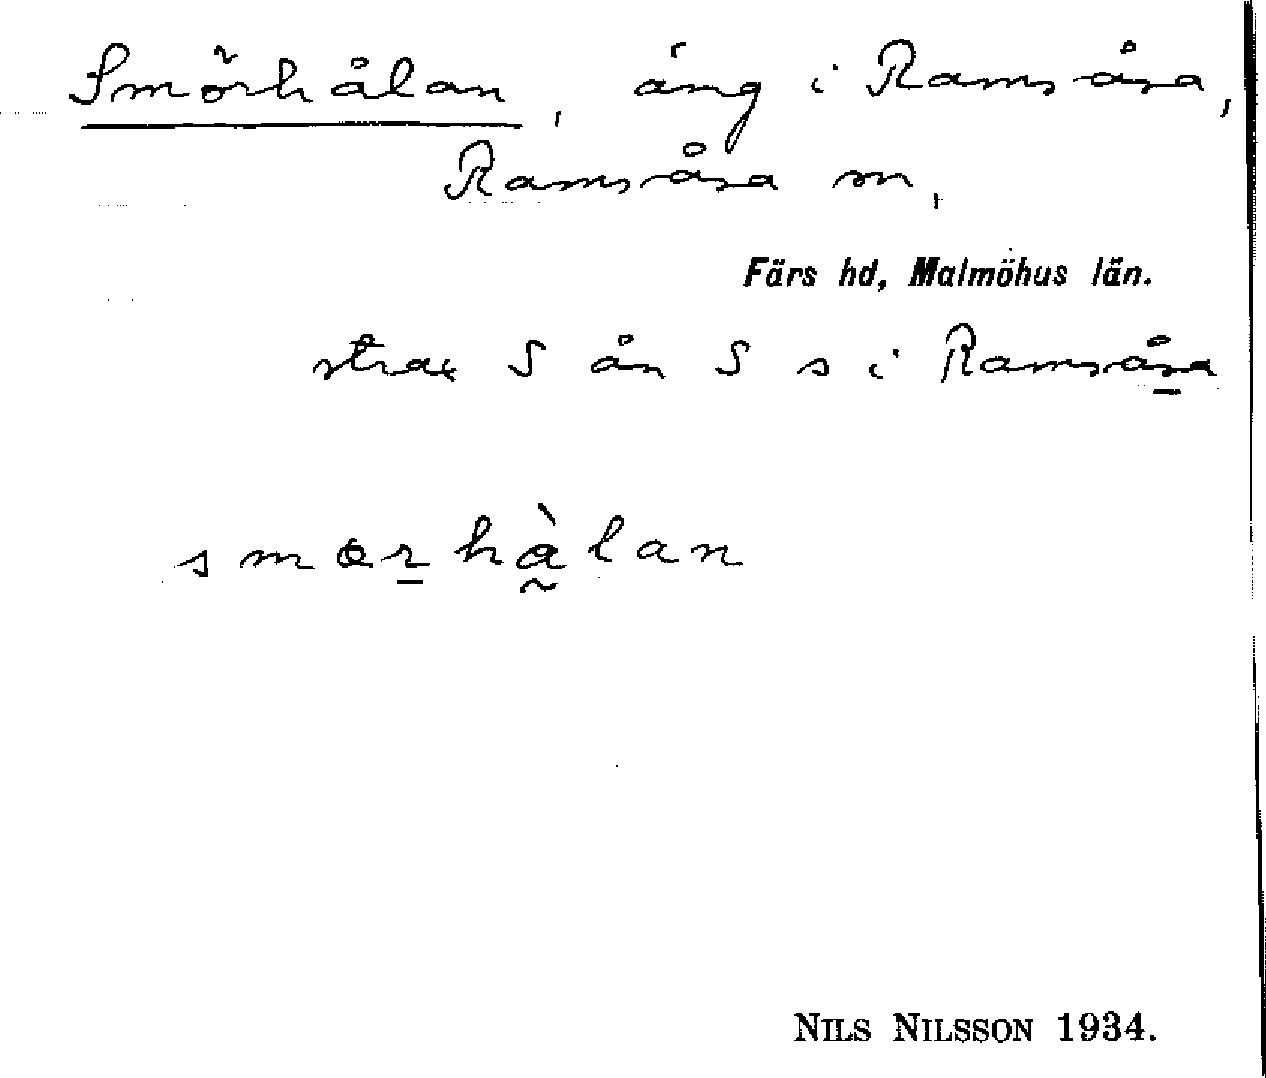 Smörhålan, äng i Ramsåsa,
Ramsåsa sn,
Färs hd, Malmöhus län.
strax S ån S s i Ramsåsa
smɵrhàlan
NILS NILSSON 1934.